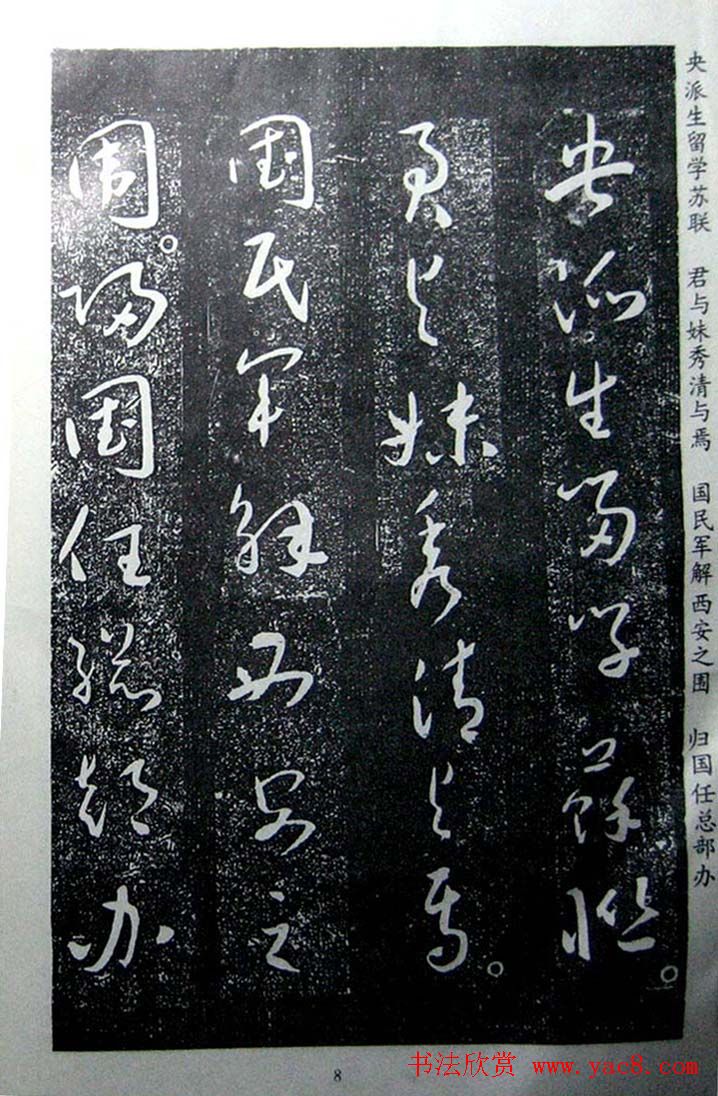 央派生留学苏联　君与妹秀清与焉　国民军解西安之围　归国任总部办
央派生留学蘇联。
君与妹秀清与焉。
国民军解西安之
围。归国任总部办
8
书法欣赏 www.yac8.com